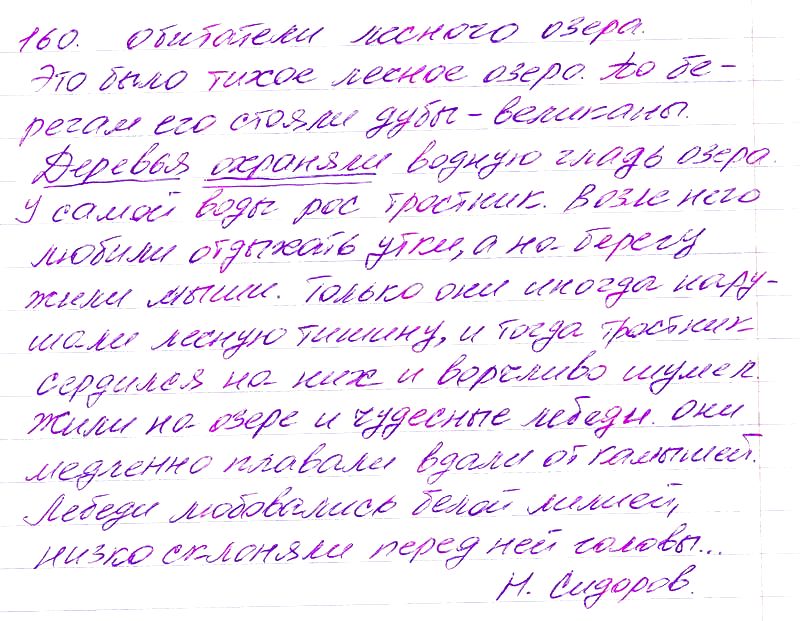 160. Обитатели лесного озера.
Это было тихое лесное озеро. По бе-
регам его стояли дубы-великаны.
Деревья охраняли водную гладь озера.
У самой воды рос тростник. Возле него
любили отдыхать утки, а на берегу
жили мыши. Только они иногда нару-
шали лесную тишину, и тогда тростник
сердился на них и ворчливо шумел.
Жили на озере и чудесные лебеди. Они
медленно плавали вдали от камышей.
Лебеди любовались белой лилией,
низко склоняли перед ней головы...
Н. Сидоров.